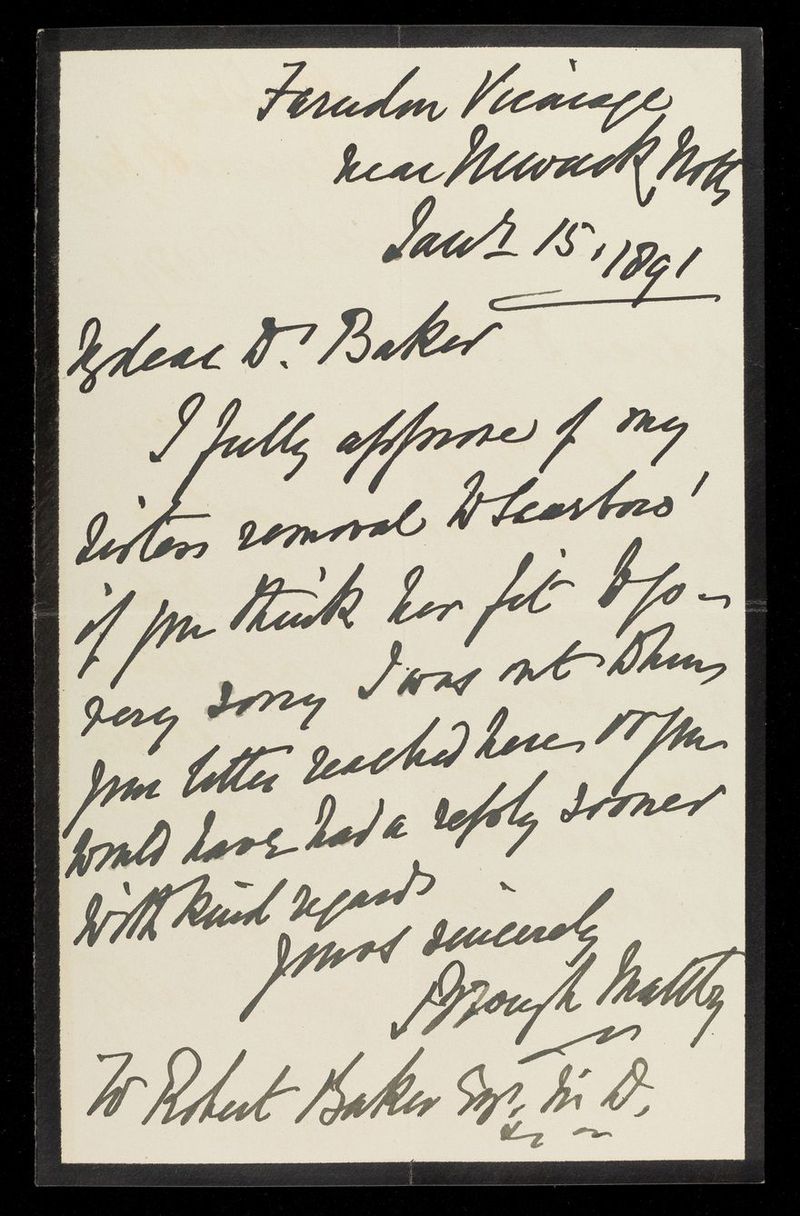 Farndon Vicarage
near Newark, Notts
Jany 15, 1891
My dear Dr. Baker
I fully approve of my
sisters removal to Scarboro'
if you think her fit to go -
very sorry I was out when
your letter reached here or you
would have had a reply sooner
With kind regards
yours sincerely
Brough Maltby
To Robert Baker Esqr. M. D.
&c